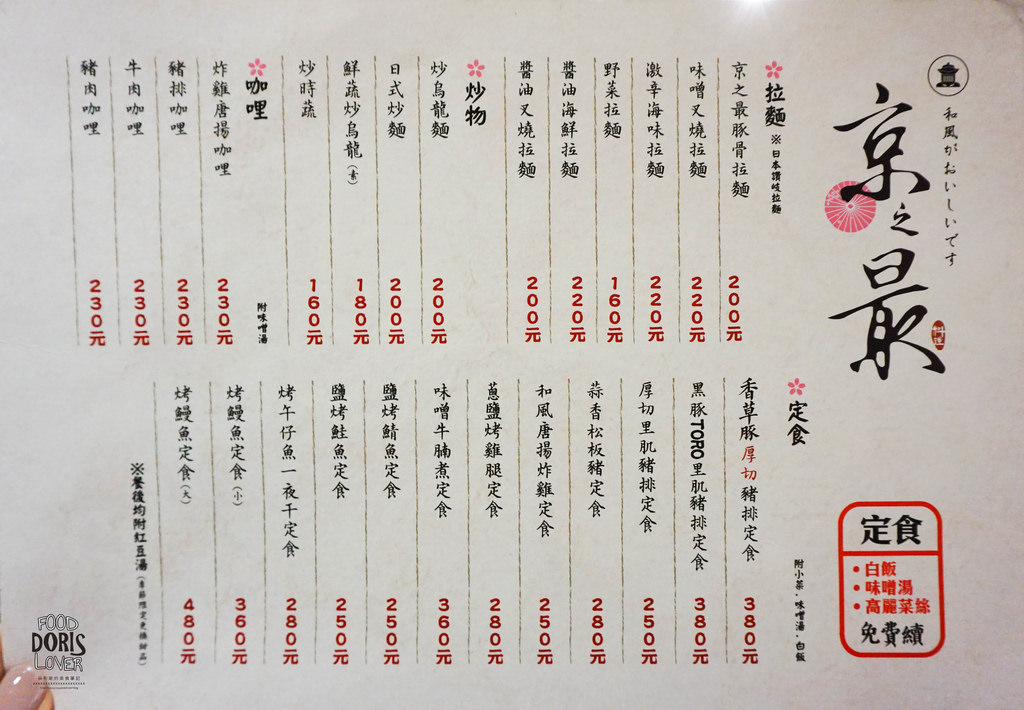 和風がおいしいです
京之最
料理
拉麵
※日本讚岐拉麵
京之最豚骨拉麵 200元
味噌叉燒拉麵 220元
激辛海味拉麵 220元
野菜拉麵 160元
醬油海鮮拉麵 220元
醬油叉燒拉麵 200元
炒物
炒烏龍麵 200元
日式炒麵 200元
鮮蔬炒烏龍(素) 180元
炒時蔬 160元
咖哩
附味噌湯
炸雞唐揚咖哩 230元
豬排咖哩 230元
牛肉咖哩 230元
豬肉咖哩 230元
定食
附小菜·味噌湯·白飯
香草豚厚切豬排定食 380元
黑豚TORO里肌豬排定食 380元
厚切里肌豬排定食 250元
蒜香松板豬定食 280元
和風唐揚炸雞定食 250元
蔥鹽烤雞腿定食 280元
味噌牛腩煮定食 360元
鹽烤鯖魚定食 250元
鹽烤鮭魚定食 250元
烤午仔魚一夜干定食 280元
烤鰻魚定食(小) 360元
烤鰻魚定食(大) 480元
※餐後均附紅豆湯(季節限定更換甜品)
定食
•白飯
•味噌湯
•高麗菜絲
免費續
FOOD
DORIS
LOVER